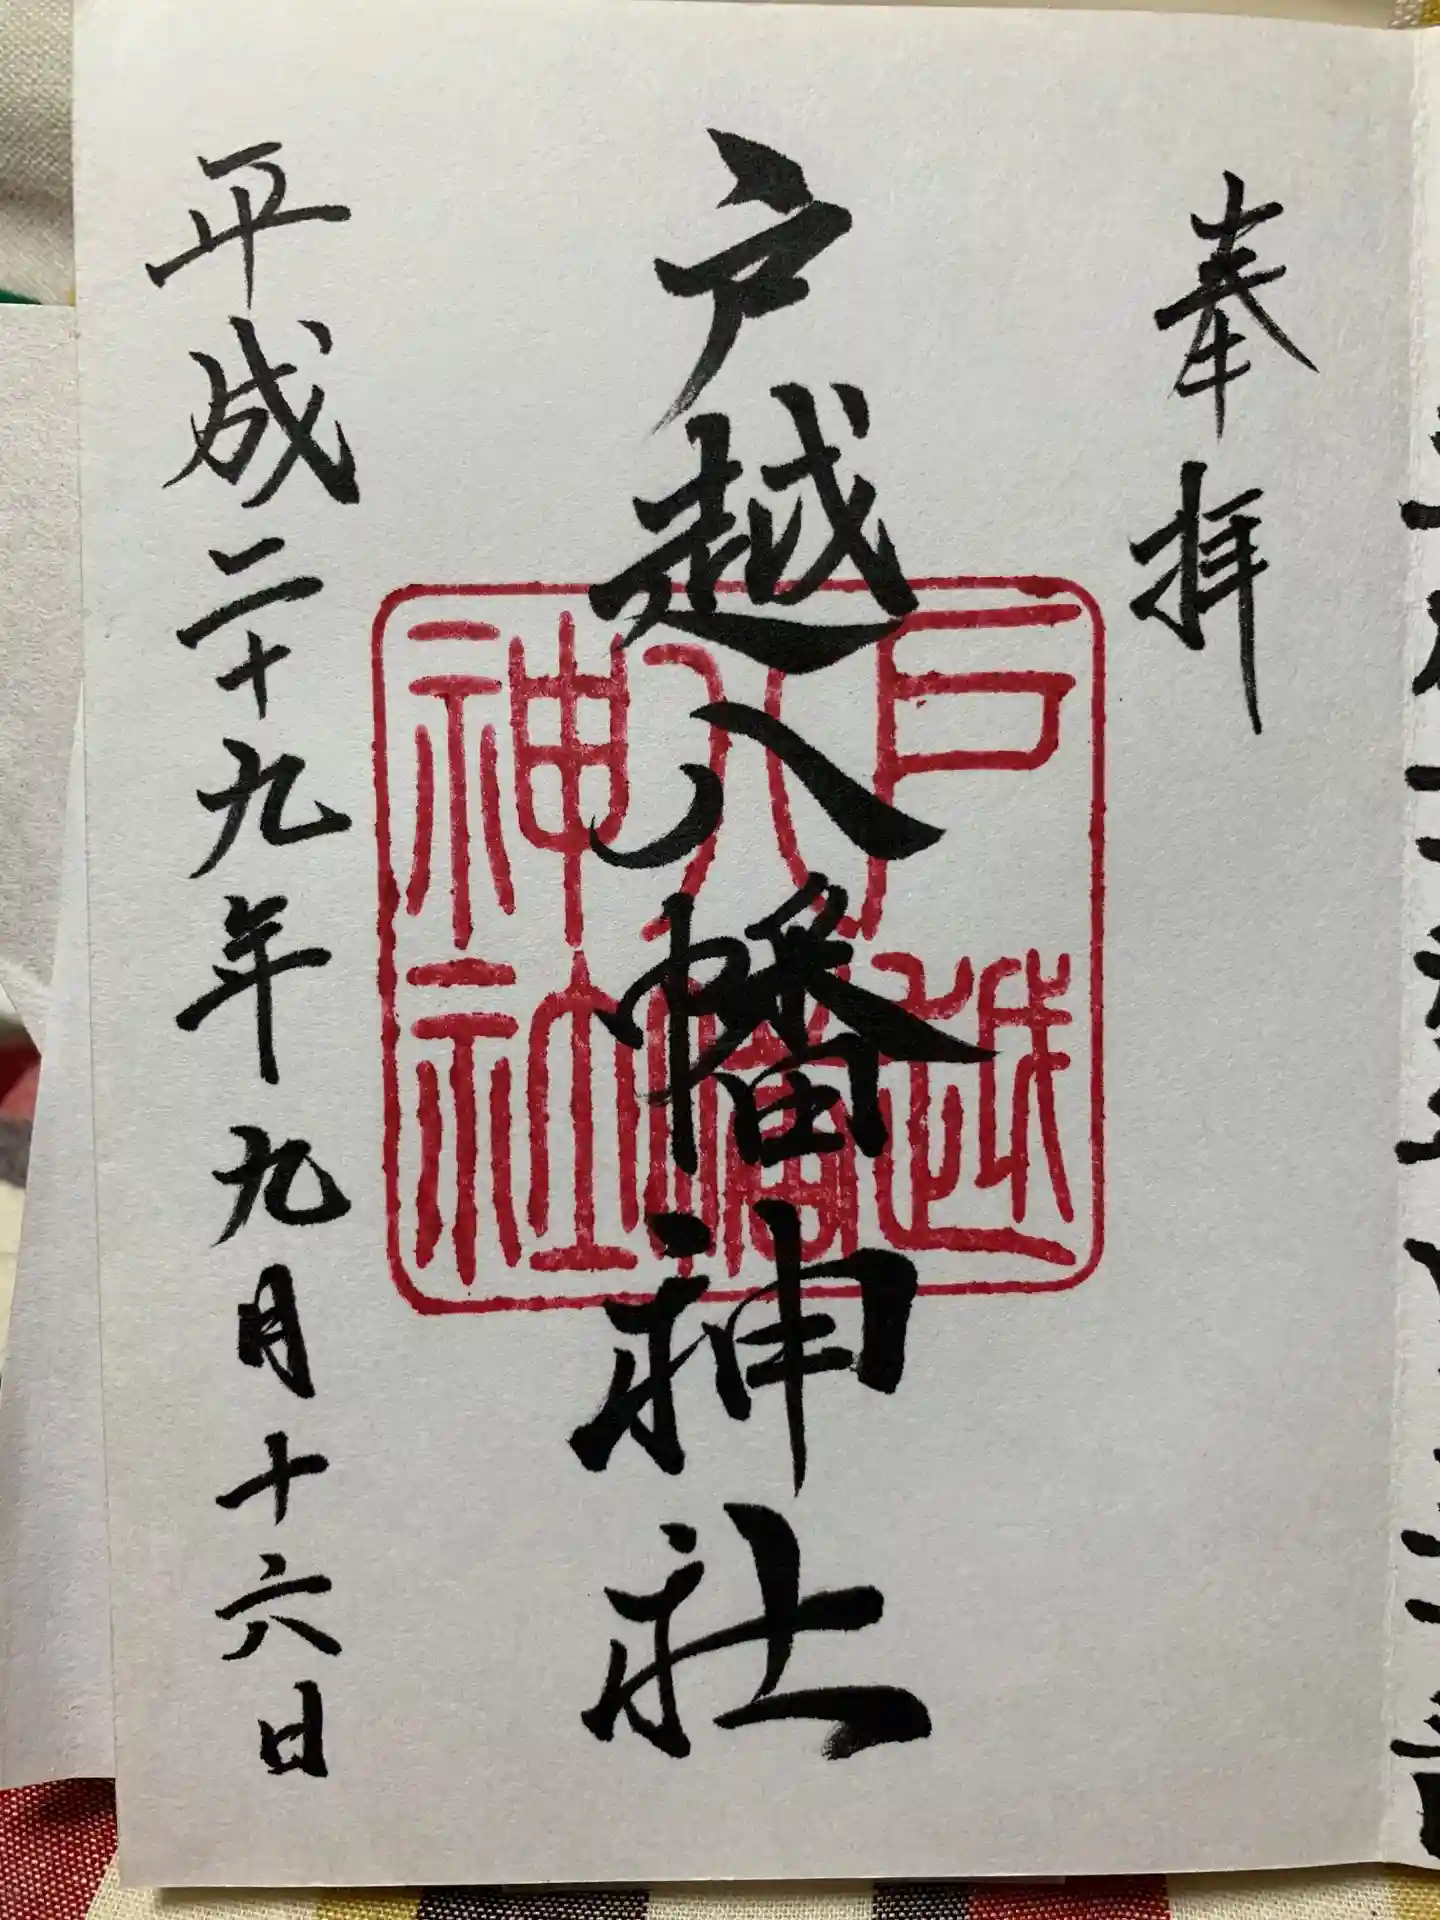 奉拝
戸越八幡神社
戸越
八幡
神社
平成二十九年九月十六日